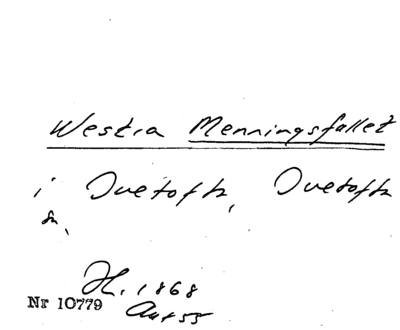 Westra Menningsfallet
i Ivetofta, Ivetofta
sn,
H. 1868
Nr 10779